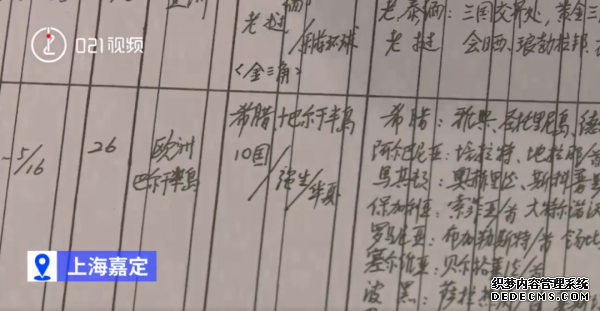 021视频
老挝
<金三角>
老泰缅：三国交界处，黄金三
老挝 会晒，琅勃拉邦，
-5/16
26
欧洲
巴尔干半岛
希腊、巴尔干半岛
10国
希腊：雅典、圣托里尼岛、德
阿尔巴尼亚：培拉特、地拉那
马其顿：奥赫里德、斯科普里
保加利亚：索非亚 大特尔诺沃
罗马尼亚：布加勒斯特
塞尔维亚：贝尔格莱德
波黑：萨拉
上海嘉定
织梦内容管理系统
DEDECMS.COM